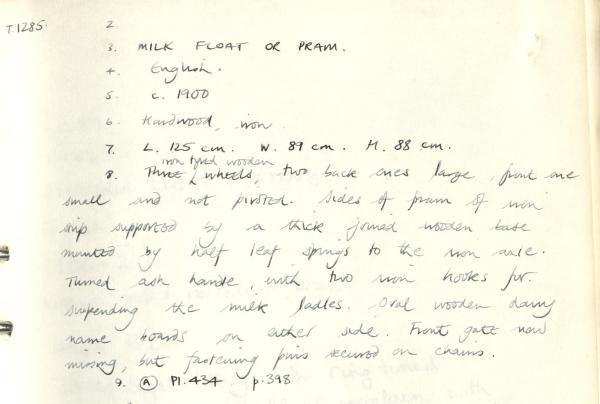 T.1285.
2.
3. MILK FLOAT OR PRAM.
4. English.
5. c. 1900
6. Hardwood, iron.
7. L. 125 cm. W. 89 cm. H. 88 cm.
iron tyred wooden
8. Three WHEELS, two back ones large, front one
small and not pivoted. Sides of pram of iron
strip supported by a thick joined wooden base
mounted by half leaf springs to the iron axle.
Turned ash handle, with two iron hooks for
suspending the milk ladles. Oval wooden dairy
name boards on either side. Front gate now
missing, but fastening pins secured on chains.
9. A Pl. 434 p.398